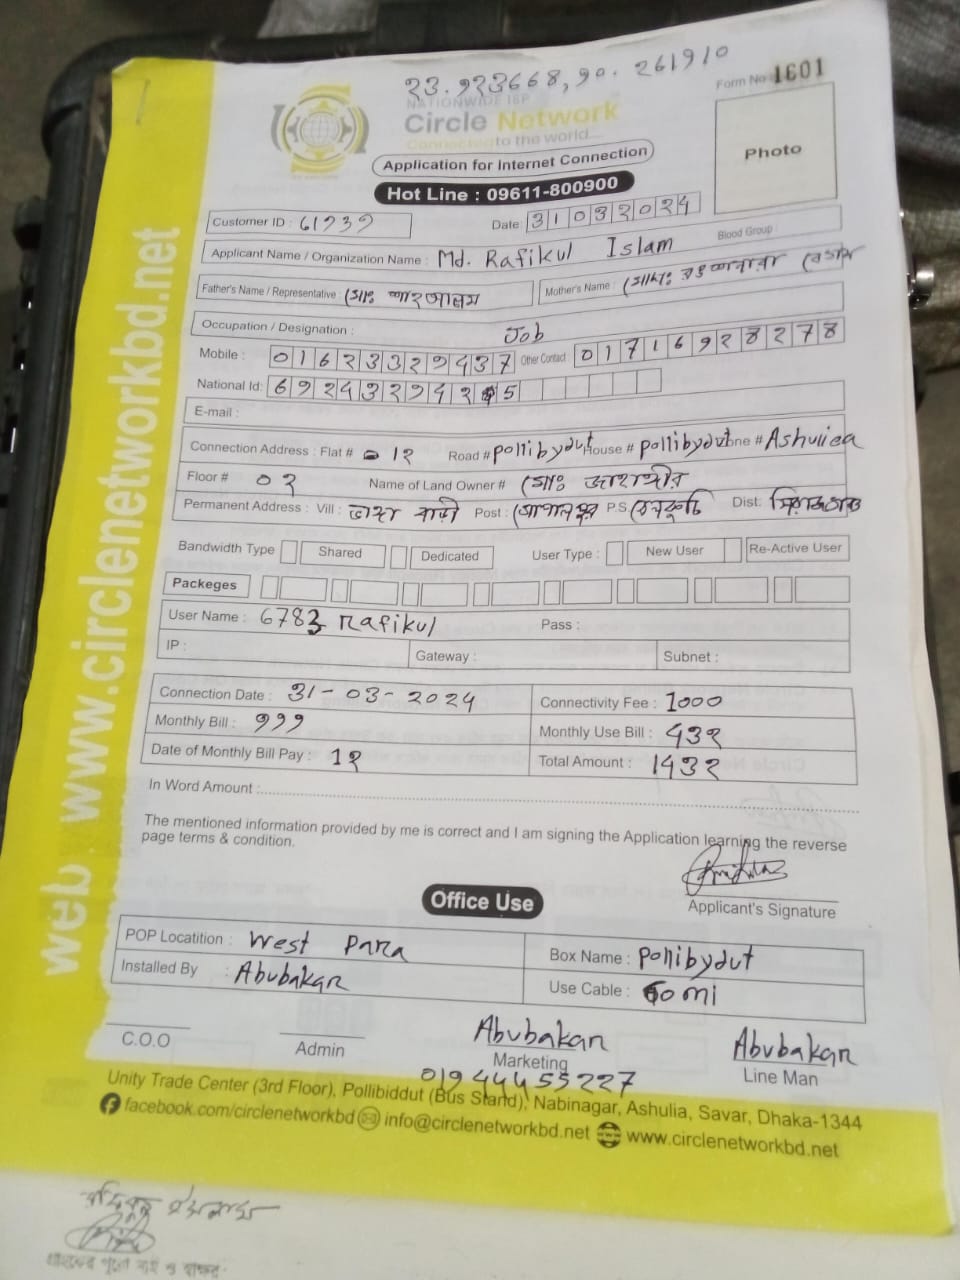 23.923668, 90.261910
Form No 1601
NATIONWIDE ISP
Circle Network
Connected to the world....
Photo
Application for Internet Connection
Hot Line : 09611-800900
Customer ID : 61939 Date: 31032024
Applicant Name / Organization Name : Md. Rafikul Islam Blood Group :
Father's Name / Representative : মোঃ শাহ আলম Mother's Name : মোছাঃ
Occupation / Designation : Job
Mobile : 01623329437 Other Contact : 01716928278
National Id:
E-mail :
Connection Address : Flat # 12 Road # pollibydut House # pollibydut Zone # Ashuliea
Floor # 02 Name of Land Owner # মোঃ জাহাঙ্গীর
Permanent Address : Vill : Post : P.S. Dist: সিরাজগঞ্জ
Bandwidth Type Shared Dedicated User Type : New User Re-Active User
Packeges
User Name : 6783 Rafikul Pass :
IP : Gateway : Subnet :
Connection Date : 31-03-2024 Connectivity Fee : 1000
Monthly Bill : 999 Monthly Use Bill : 432
Date of Monthly Bill Pay : 12 Total Amount : 1432
In Word Amount :
The mentioned information provided by me is correct and I am signing the Application learning the reverse
page terms & condition.
Applicant's Signature
Office Use
POP Locatition : West Para Box Name : pollibydut
Installed By : Abubakar Use Cable : 60 mi
Abubakar Abubakar
C.O.O Admin Marketing Line Man
01944455227
Unity Trade Center (3rd Floor), Pollibiddut (Bus Stand), Nabinagar, Ashulia, Savar, Dhaka-1344
facebook.com/circlenetworkbd info@circlenetworkbd.net www.circlenetworkbd.net
web www.circlenetworkbd.net
রফিকুল ইসলাম
গ্রাহকের পুরো নাম ও স্বাক্ষর